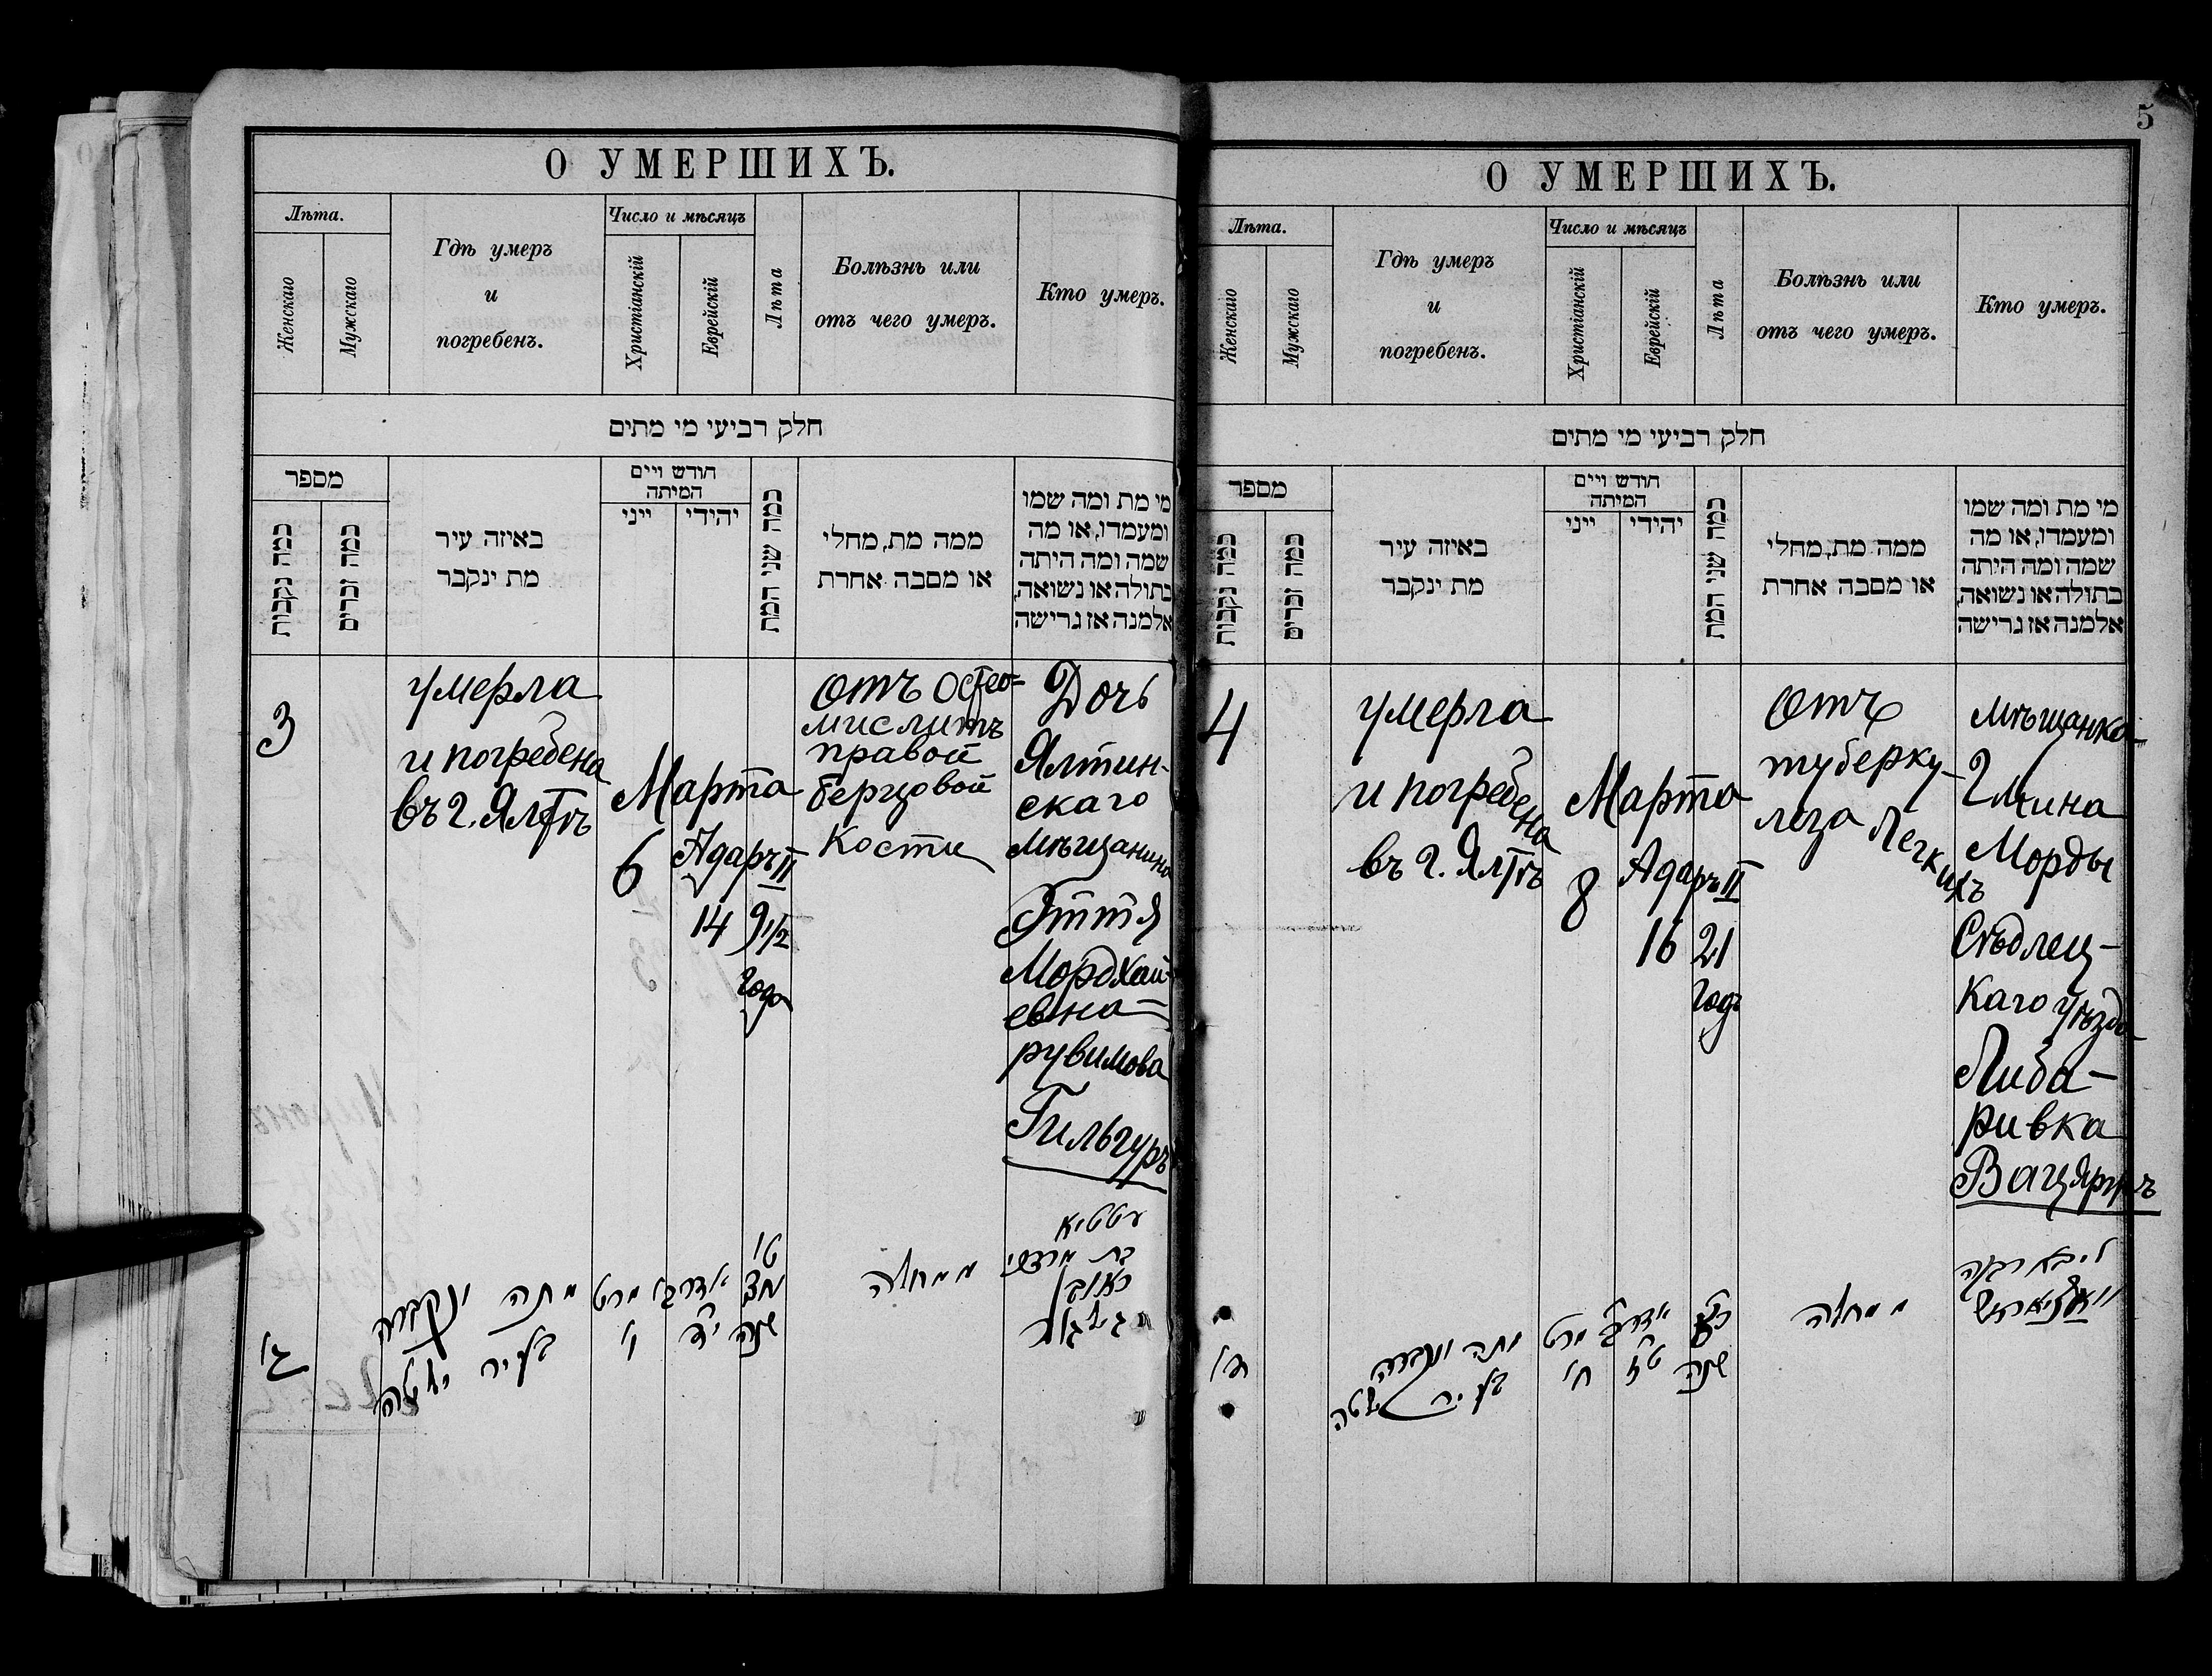 О УМЕРШИХЪ.
Лѣта.
Женскаго
Мужскаго
Гдѣ умеръ
и
погребенъ.
Число и мѣсяцъ
Христіанскій
Еврейскій
Лѣта
Болѣзнь или
отъ чего умеръ.
Кто умеръ.
חלק רביעי מי מתים
מספר
כמה נקבות
כמה זכרים
באיזה עיר
מת ינקבר
חודש ויים
המיתה
יהודי
ייני
כמה שני המת
ממה מת, מחלי
או מסבה אחרת
מי מת ומה שמו
ומעמדו, או מה
שמה ומה היתה
בתולה או נשואה,
אלמנה אז גרישה
3
умерла
и погребена
въ г. Ялтѣ
Марта
6
Адаръ II
14
9 1/2
года
отъ Остео-
мислитъ
правой
берцовой
кости
Дочь
Ялтин-
скаго
мѣщанина
Эттля
Мордхай-
евна
рувимова
Гильгуръ
ג'
מתה ונקברה
בעיר יאלטה
מרט
ו'
אדר
י"ד
ט'
שנה
ממחלה
בת מרדכי
ראובן
5
О УМЕРШИХЪ.
Лѣта.
Женскаго
Мужскаго
Гдѣ умеръ
и
погребенъ.
Число и мѣсяцъ
Христіанскій
Еврейскій
Лѣта
Болѣзнь или
отъ чего умеръ.
Кто умеръ.
חלק רביעי מי מתים
מספר
כמה נקבות
כמה זכרים
באיזה עיר
מת ינקבר
חודש ויים
המיתה
יהודי
ייני
כמה שני המת
ממה מת, מחלי
או מסבה אחרת
מי מת ומה שמו
ומעמדו, או מה
שמה ומה היתה
בתולה או נשואה,
אלמנה אז גרישה
4
умерла
и погребена
въ г. Ялтѣ
Марта
8
Адаръ II
16
21
годъ
отъ
туберку-
леза легкихъ
мѣщанка
Гмина
Морды
Сѣдлец-
каго уѣзда
Либа-
ривка
Вацяржъ
ד'
מתה ונקברה
בעיר יאלטה
מרט
ח'
אדר
ט"ז
שנה
ממחלה
ליבא רבקה